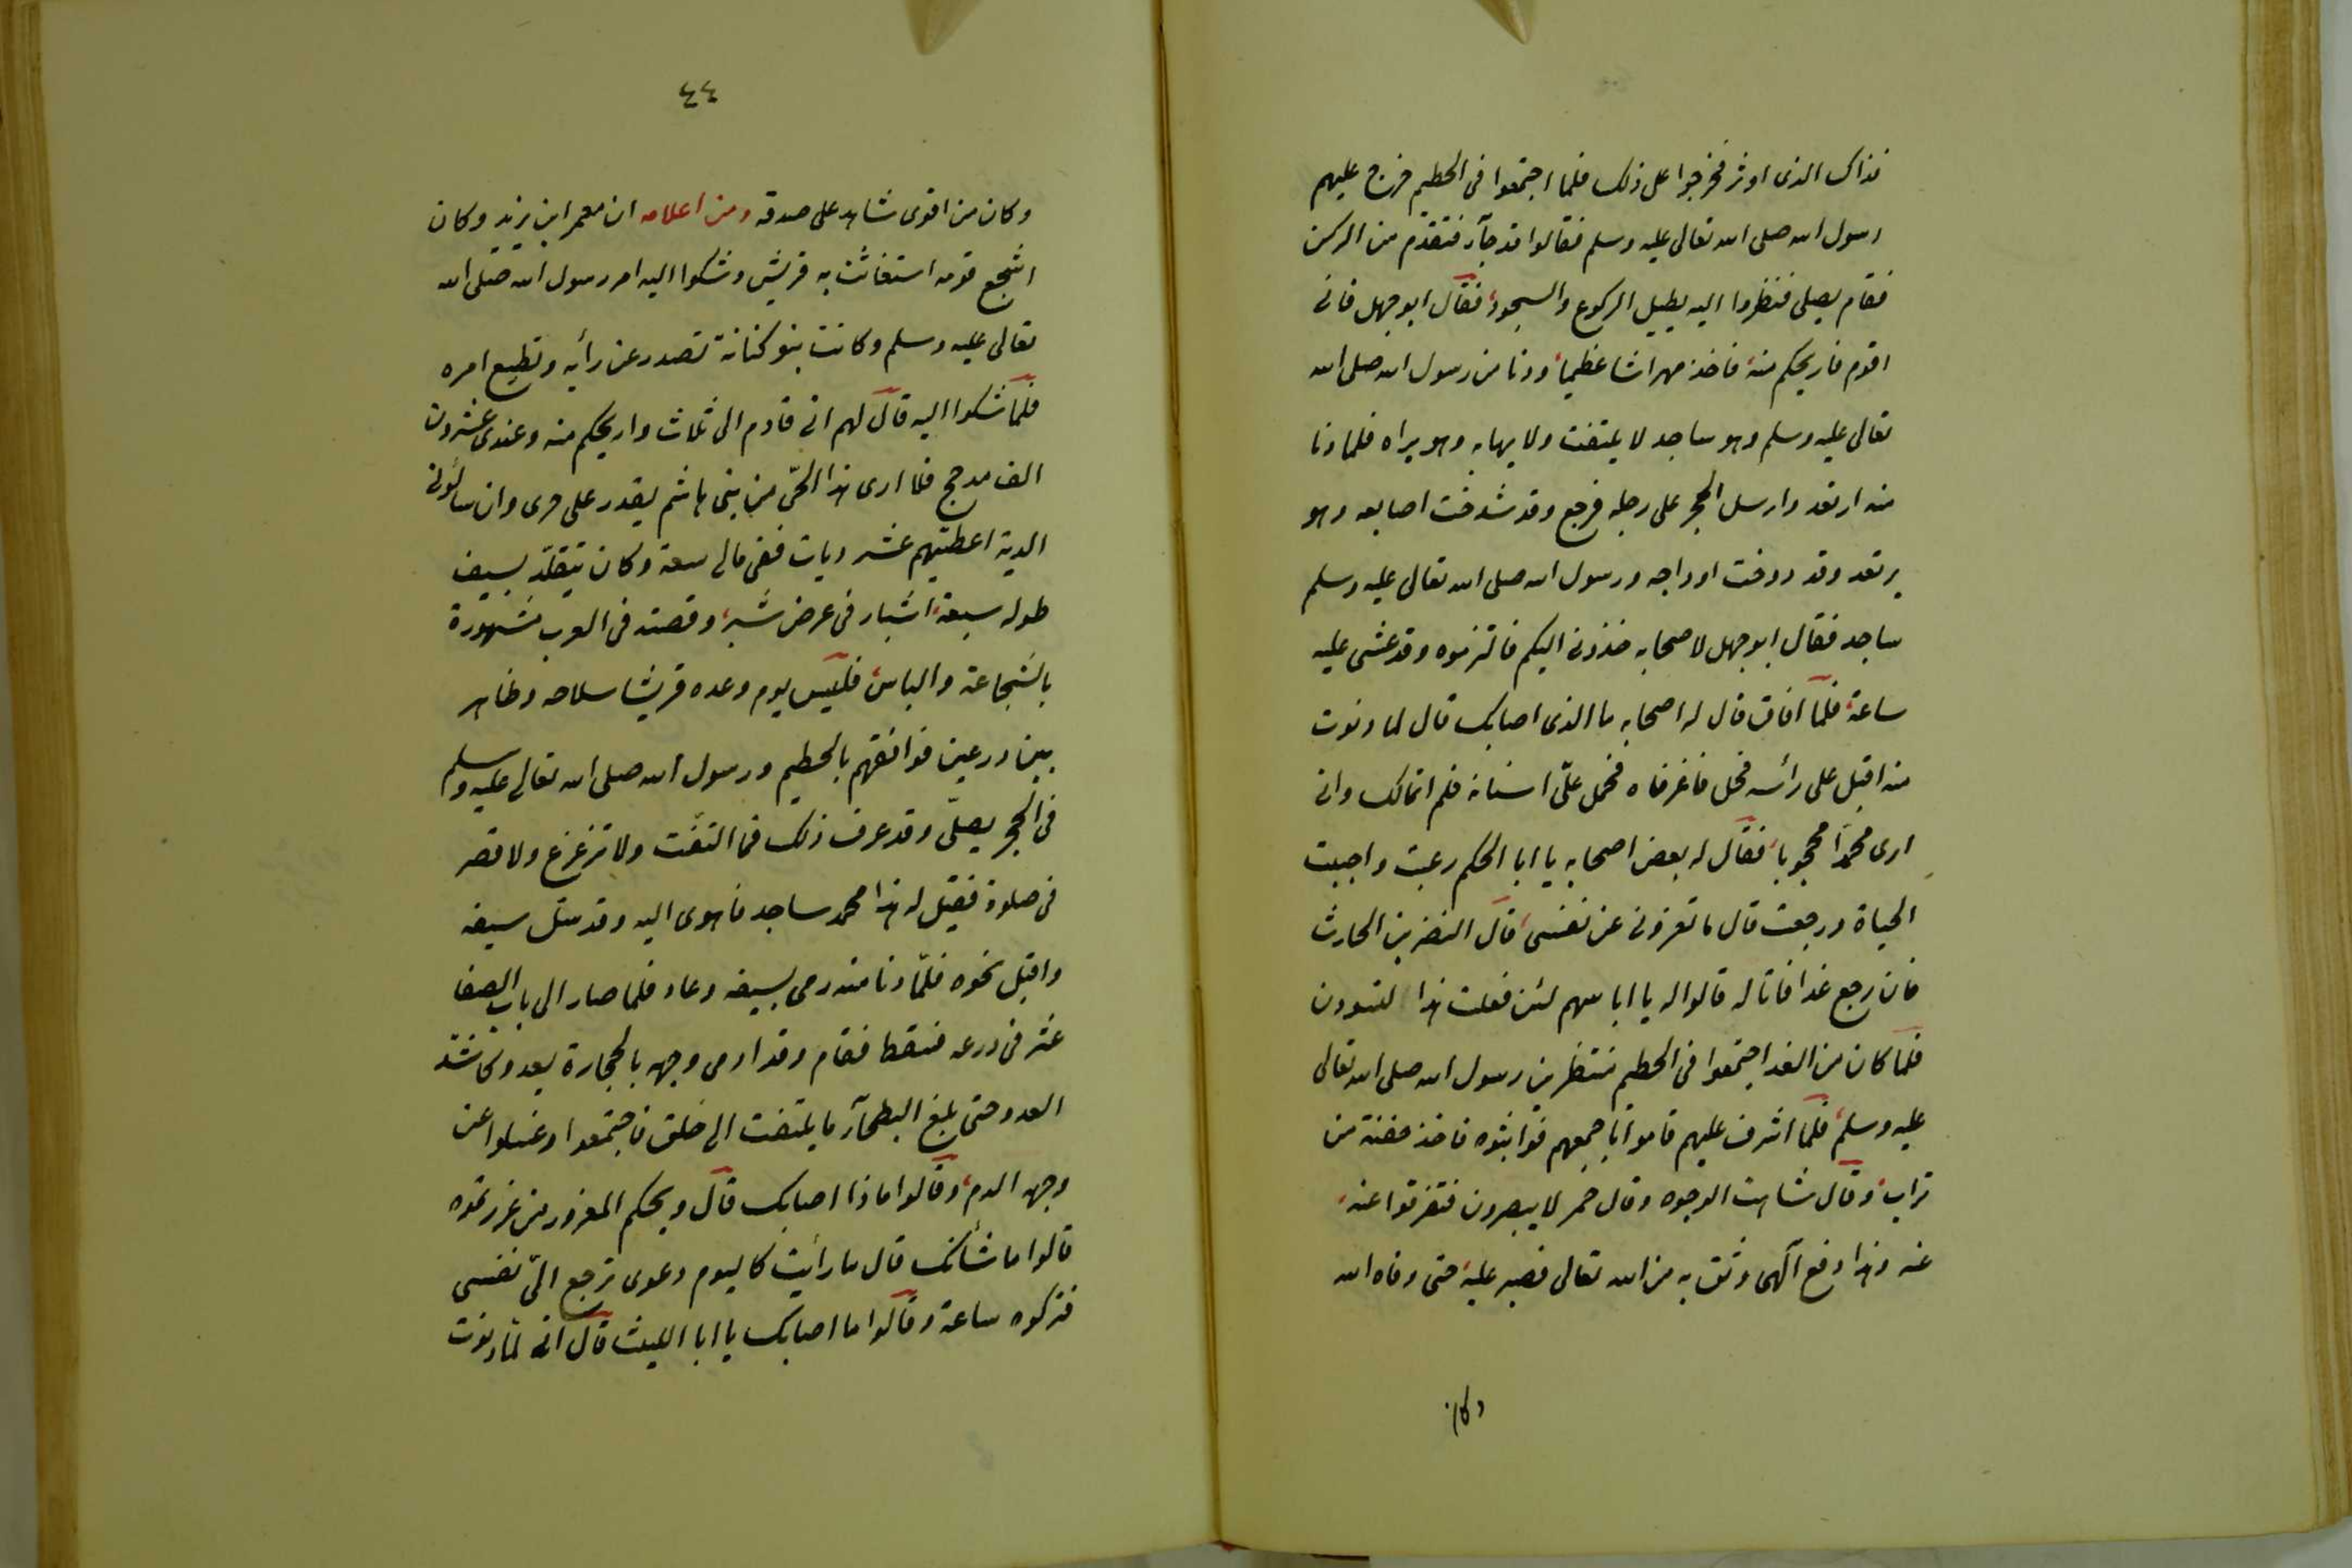 فذاك الذى اوثر فخرجوا على ذلك فلما اجتمعوا فى الحطيم خرج عليهم
رسول الله صلى الله تعالى عليه وسلم فقالوا قد جآء فتقدم من الركن
فقام يصلى فنظروا اليه يطيل الركوع والسجود فقال ابو جهل فانى
اقوم فاريحكم منه فاخذ مهراشا عظيما ودنا من رسول الله صلى الله
تعالى عليه وسلم وهو ساجد لا يلتفت ولا يهابه وهو يراه فلما دنا
منه ارتعد وارسل الحجر على رجله فرجع وقد شدخت اصابعه وهو
يرتعد وقد دوخت اوداجه ورسول الله صلى الله تعالى عليه وسلم
ساجد فقال ابو جهل لاصحابه خذونى اليكم فالتزموه وقد غشى عليه
ساعة فلما افاق قال له اصحابه ما الذى اصابك قال لما دنوت
منه اقبل على رأسه فحل فاغرفاه فحمل علىّ اسنانه فلم اتمالك وانى
ارى محمدا محجوبا فقال له بعض اصحابه يا ابا الحكم رعبت واحببت
الحياة ورجعت قال ما تغرونى عن نفسى قال النضر بن الحارث
فان رجع غدا فانا له قالوا له يا ابا سهم لئن فعلت هذا لتسودن
فلما كان من الغد اجتمعوا فى الحطيم منتظرين رسول الله صلى الله تعالى
عليه وسلم فلما اشرف عليهم قاموا باجمعهم فواثبوه فاخذ حفنة من
تراب وقال شاهت الوجوه وقال حمر لا يبصرون فتفرقوا عنه
عنه وهذا دفع آلهى وثق به من الله تعالى فصبر عليه حتى وقاه الله
وكان
٤٤
وكان من اقوى شاهد على صدقه ومن اعلامه ان معمر ابن يزيد وكان
اشجع قومه استغاثت به قريش وشكوا اليه امر رسول الله صلى الله
تعالى عليه وسلم وكانت بنو كنانة تصدر عن رأيه وتطيع امره
فلما شكوا اليه قال لهم انى قادم الى ثلاث واريحكم منه وعندى عشرون
الف مدجج فلا ارى هذا الحى من بنى هاشم يقدر على حربى وان سألونى
الدية اعطيتهم عشر ديات ففى مالى سعة وكان يتقلد بسيف
طوله سبعة اشبار فى عرض شبر وقصته فى العرب مشهورة
بالشجاعة والباس فلبس يوم وعده قريشا سلاحه وظاهر
بين درعين فوافقهم بالحطيم ورسول الله صلى الله تعالى عليه وسلم
فى الحجر يصلى وقد عرف ذلك فما التفت ولا تزعزع ولا قصر
فى صلوة فقيل له هذا محمد ساجد فاهوى اليه وقد سل سيفه
واقبل نحوه فلما دنا منه رمى بسيفه وعاد فلما صار الى باب الصفا
عثر فى درعه فسقط فقام وقد ادمى وجهه بالحجارة يعدو كاشد
العدو حتى بلغ البطحآء ما يلتفت الى خلف فاجتمعوا وغسلوا عن
وجهه الدم وقالوا ماذا اصابك قال ويحكم المغرور من غررتموه
قالوا ما شأنك قال ما رأيت كاليوم دعونى ترجع الىّ نفسى
فتركوه ساعة وقالوا ما اصابك يا ابا الليث قال انى لما دنوت